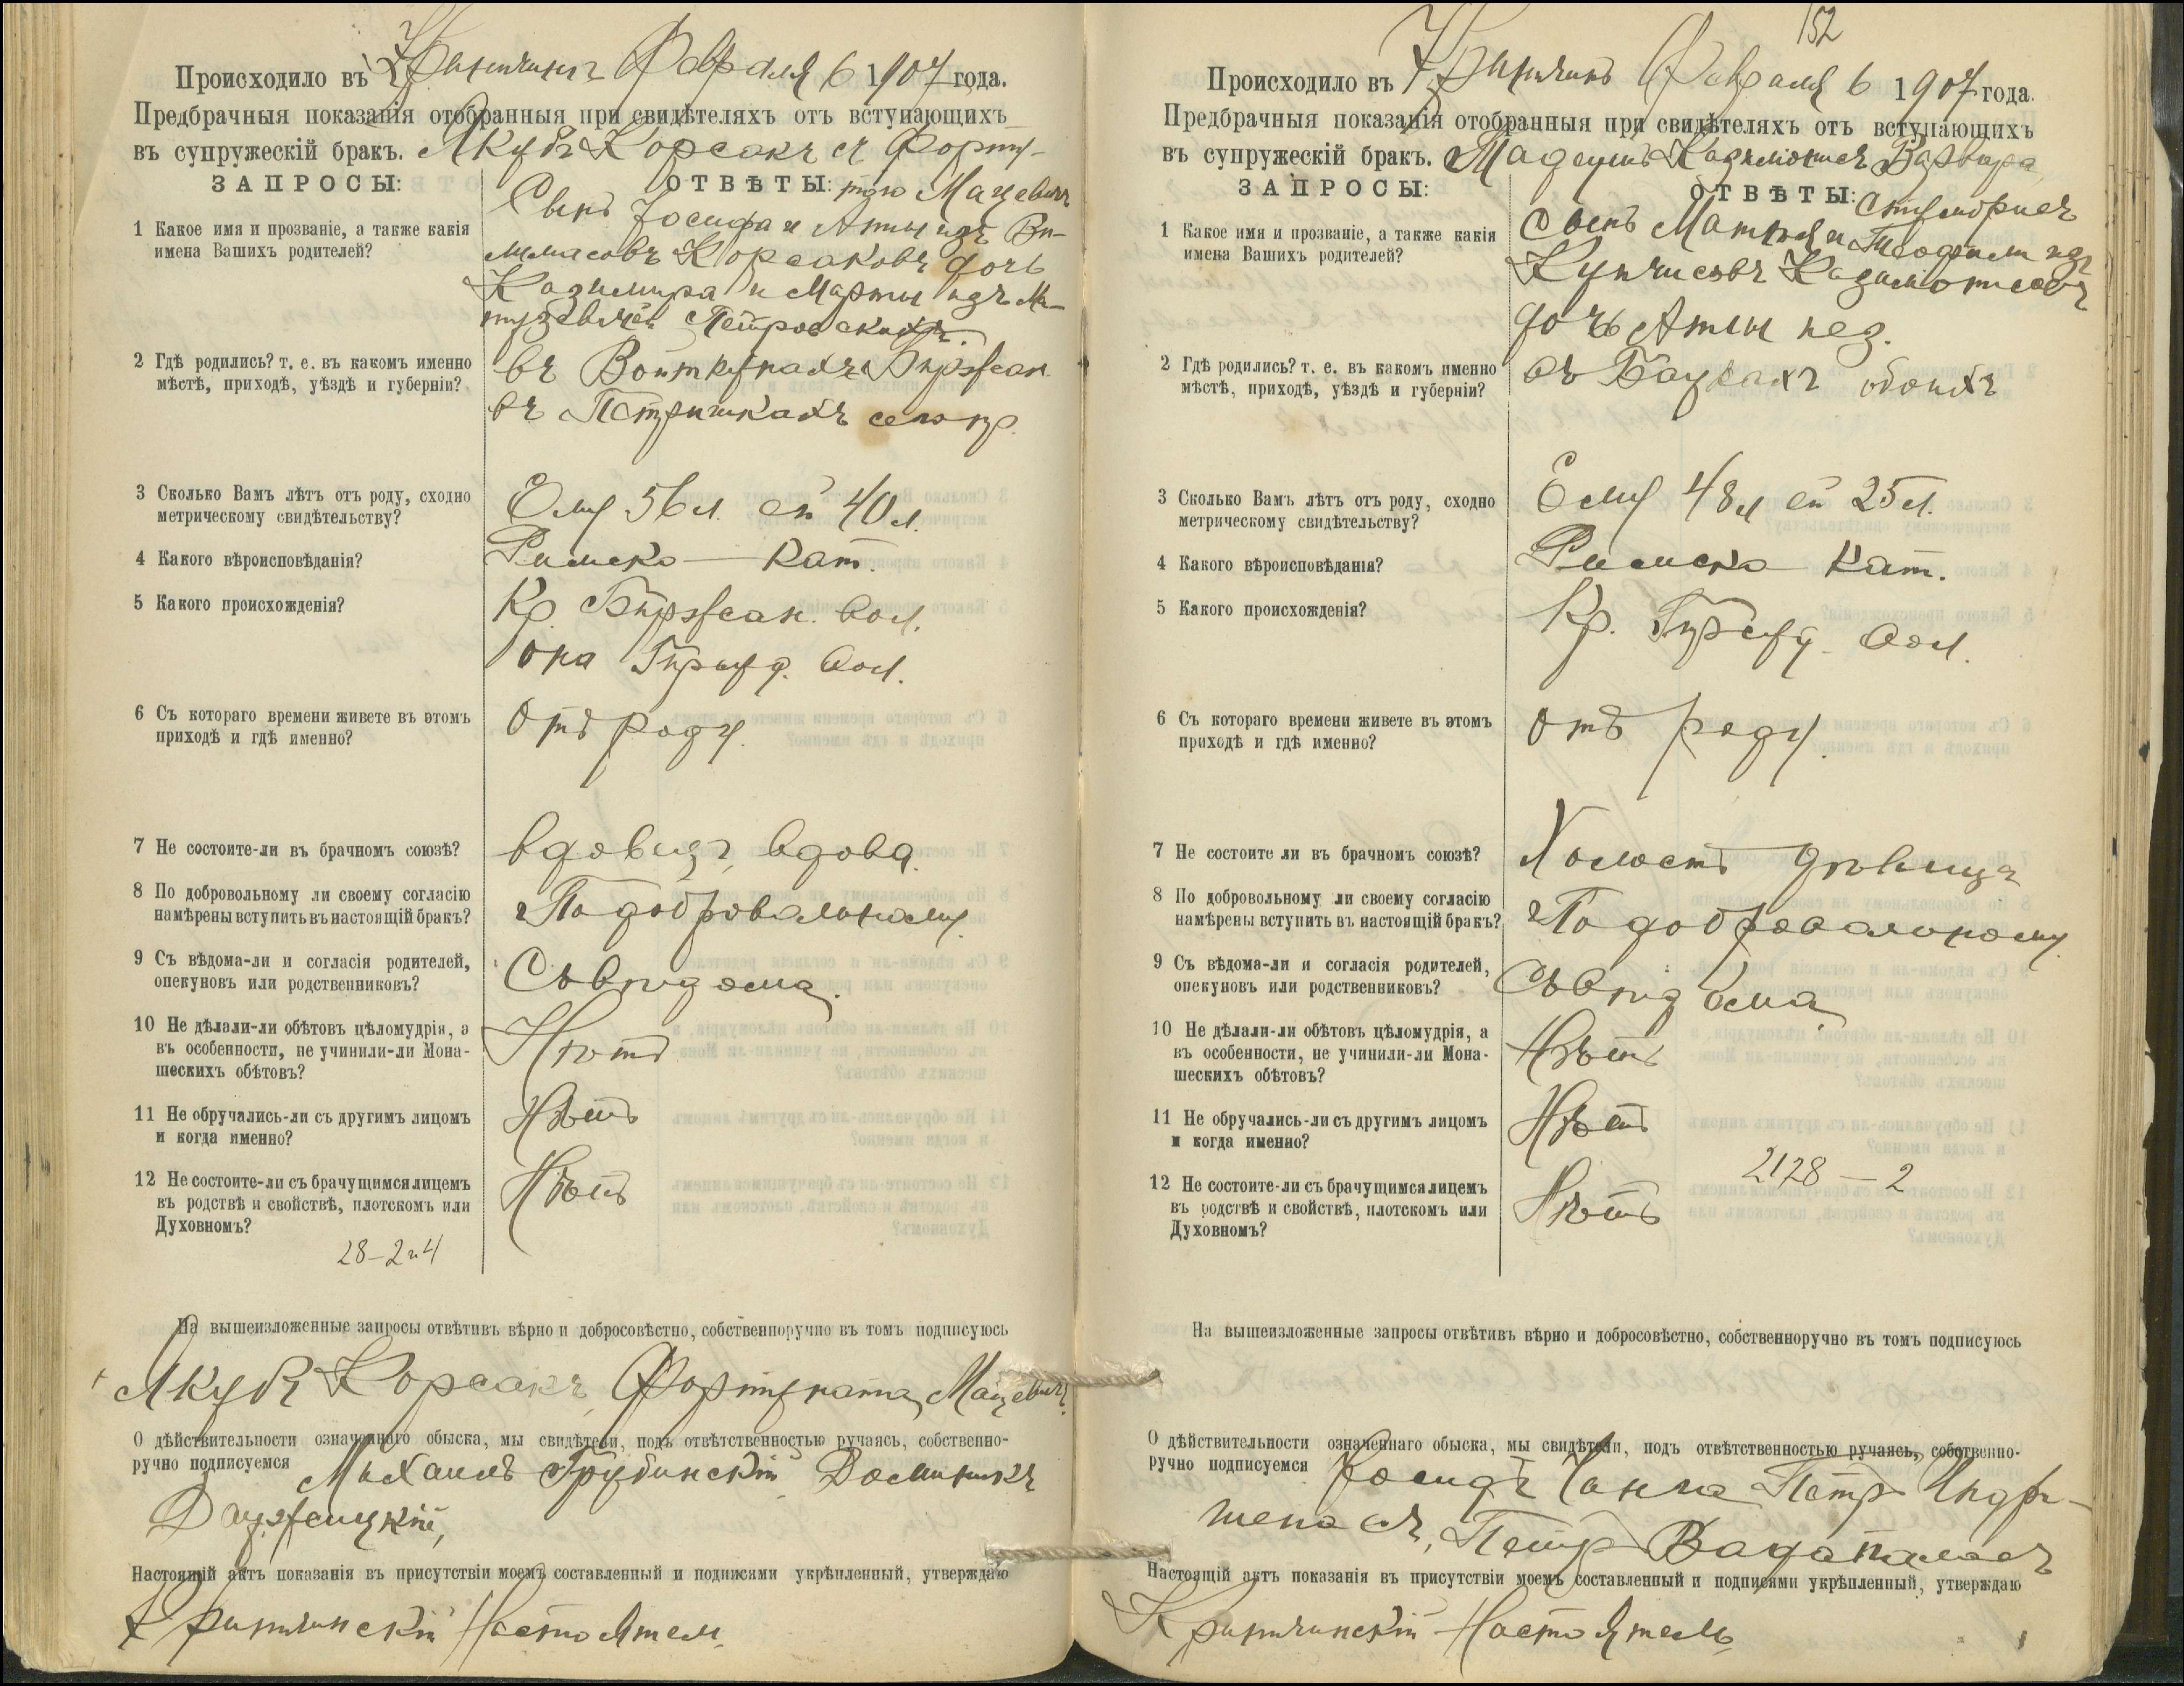 Происходило въ Кринчинъ Февраля 6 1907 года.
Предбрачныя показанія отобранныя при свидѣтеляхъ отъ вступающихъ
въ супружескій бракъ. Якубъ Корсакъ съ Форту-
ЗАПРОСЫ: ОТВѢТЫ: тою Мацевичъ
1 Какое имя и прозваніе, а также какія
имена Вашихъ родителей?
Сынъ Іосифа и Анны изъ
Корсаковъ дочь
Казимира и Марты изъ
Петровскихъ.
2 Гдѣ родились? т. е. въ какомъ именно
мѣстѣ, приходѣ, уѣздѣ и губерніи?
въ Войткунахъ Биржан.
въ Петришкахъ
3 Сколько Вамъ лѣтъ отъ роду, сходно
метрическому свидѣтельству?
Ему 56 л. ей 40 л.
4 Какого вѣроисповѣданія?
Римско-Кат.
5 Какого происхожденія?
Кр. Биржан. вол.
она вол.
6 Съ котораго времени живете въ этомъ
приходѣ и гдѣ именно?
Отъ роду.
7 Не состоите-ли въ брачномъ союзѣ?
Вдовецъ, вдова.
8 По добровольному ли своему согласію
намѣрены вступить въ настоящій бракъ?
По добровольному.
9 Съ вѣдома-ли и согласія родителей,
опекуновъ или родственниковъ?
Съ вѣдома.
10 Не дѣлали-ли обѣтовъ цѣломудрія, а
въ особенности, не учинили-ли Мона-
шескихъ обѣтовъ?
Нѣтъ
11 Не обручались-ли съ другимъ лицомъ
и когда именно?
Нѣтъ
12 Не состоите-ли съ брачущимся лицемъ
въ родствѣ и свойствѣ, плотскомъ или
Духовномъ?
Нѣтъ
28-2 и 4
На вышеизложенные запросы отвѣтивъ вѣрно и добросовѣстно, собственноручно въ томъ подписуюсь
Якубъ Корсакъ, Фортуната Мацевичъ.
О дѣйствительности означеннаго обыска, мы свидѣтели, подъ отвѣтственностью ручаясь, собственно-
ручно подписуемся Михаилъ Грубинскій Доминикъ
Настоящій актъ показанія въ присутствіи моемъ составленный и подписями укрѣпленный, утверждаю
Кринчинскій Настоятель
152
Происходило въ Кринчинъ Февраля 6 1907 года.
Предбрачныя показанія отобранныя при свидѣтеляхъ отъ вступающихъ
въ супружескій бракъ. Варвара
ЗАПРОСЫ: ОТВѢТЫ:
1 Какое имя и прозваніе, а также какія
имена Вашихъ родителей?
Сынъ Матвѣя и Теофили изъ
дочь Анны нез.
2 Гдѣ родились? т. е. въ какомъ именно
мѣстѣ, приходѣ, уѣздѣ и губерніи?
въ обоихъ
3 Сколько Вамъ лѣтъ отъ роду, сходно
метрическому свидѣтельству?
Ему 48 л ей 25 л.
4 Какого вѣроисповѣданія?
Римско Кат.
5 Какого происхожденія?
Кр. вол.
6 Съ котораго времени живете въ этомъ
приходѣ и гдѣ именно?
Отъ роду.
7 Не состоите ли въ брачномъ союзѣ?
Холостъ дѣвица
8 По добровольному ли своему согласію
намѣрены вступить въ настоящій бракъ?
По добровольному.
9 Съ вѣдома-ли и согласія родителей,
опекуновъ или родственниковъ?
Съ вѣдома
10 Не дѣлали-ли обѣтовъ цѣломудрія, а
въ особенности, не учинили-ли Мона-
шескихъ обѣтовъ?
Нѣтъ
11 Не обручались-ли съ другимъ лицомъ
и когда именно?
Нѣтъ
2128 - 2
12 Не состоите-ли съ брачущимся лицемъ
въ родствѣ и свойствѣ, плотскомъ или
Духовномъ?
Нѣтъ
На вышеизложенные запросы отвѣтивъ вѣрно и добросовѣстно, собственноручно въ томъ подписуюсь
О дѣйствительности означеннаго обыска, мы свидѣтели, подъ отвѣтственностью ручаясь, собственно-
ручно подписуемся Іосифъ Петръ
Петръ
Настоящій актъ показанія въ присутствіи моемъ составленный и подписями укрѣпленный, утверждаю
Кринчинскій Настоятель